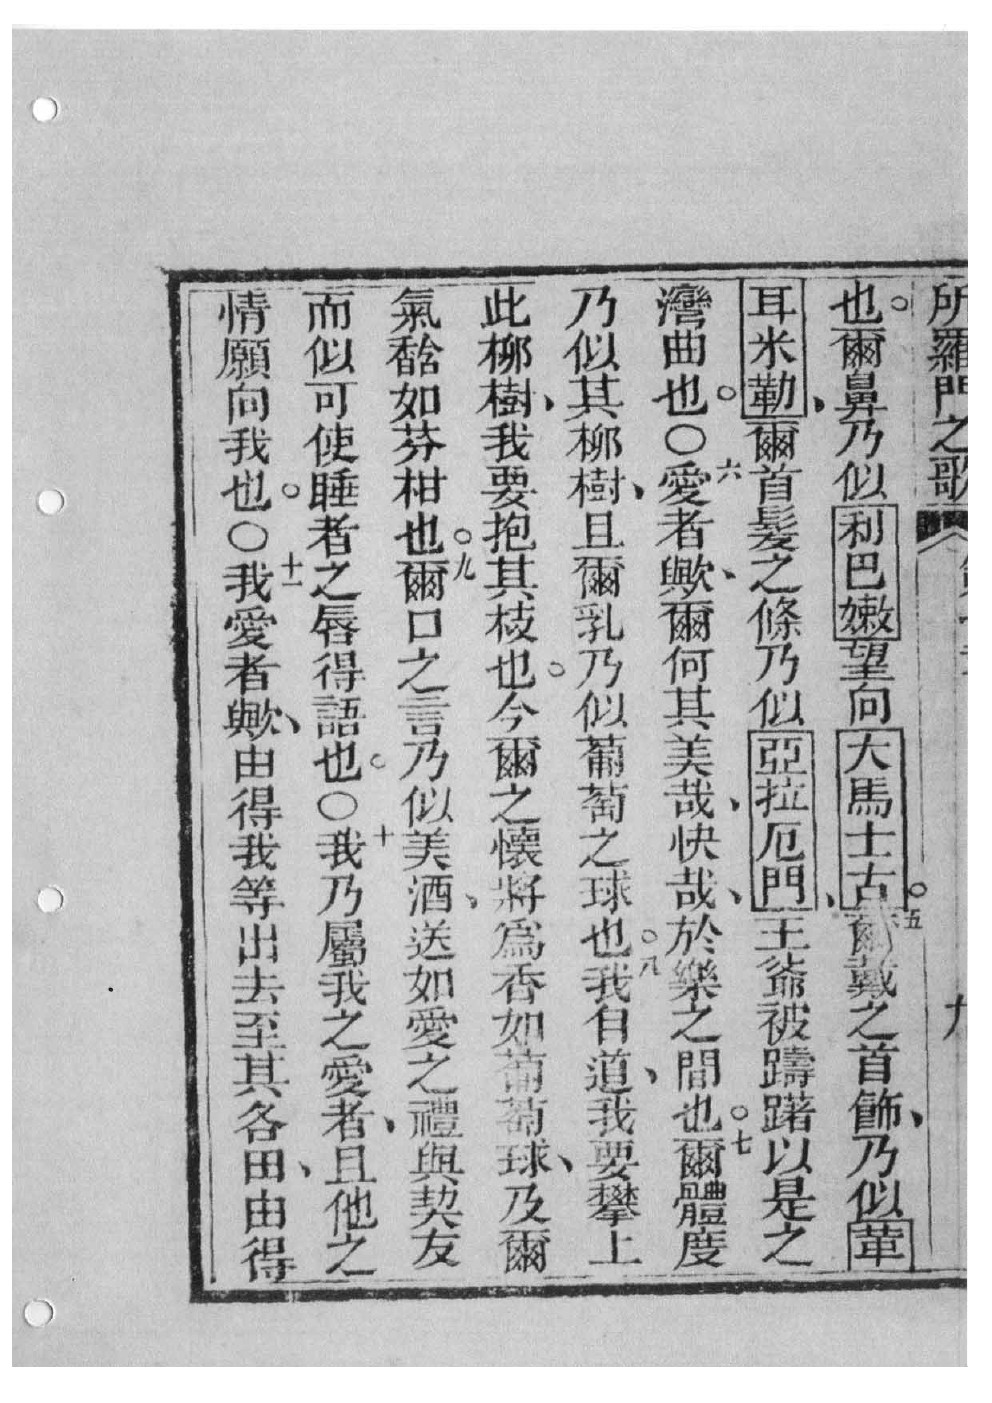 所羅門之歌
九
也。爾鼻乃似利巴嫩望向大馬士古。五爾戴之首飾、乃似葷
耳米勒、爾首髮之條乃似亞拉厄門、王爺被躊躇以是之
灣曲也。○六愛者歟、爾何其美哉、快哉、於樂之間也。七爾體度
乃似其柳樹、且爾乳乃似葡萄之球也。八我自道、我要攀上
此柳樹、我要抱其枝也。今爾之懷將爲香如葡萄球、及爾
氣馠如芬柑也。九爾口之言乃似美酒、送如愛之禮與契友
而似可使睡者之唇得語也。○十我乃屬我之愛者、且他之
情願向我也。○十一我愛者歟、由得我等出去至其各田、由得